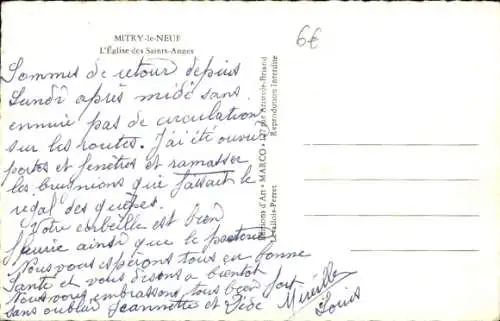 MITRY-le-NEUF
L'Église des Saints-Anges
6€
Sommes de retour depuis
Lundi après midi sans
ennuie pas de circulation
sur les routes. J'ai été ouvrir
portes et fenêtres et ramasser
les brugnions que faisait le
régal des guêpes.
Votre corbeille est bien
fleurie ainsi que le
Nous vous espérons tous en bonne
santé et vous disons a bientôt
Nous vous embrassons tous bien fort
sans oublier Jeannette et Dédé Mireille
Louis
Editions d'Art • MARCO • 127 rue Aristide-Briand
Levallois-Perret
Reproduction Interdite